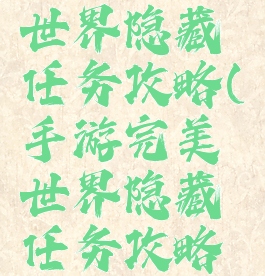 世界隐藏
任务攻略(
手游完美
世界隐藏
任务攻略